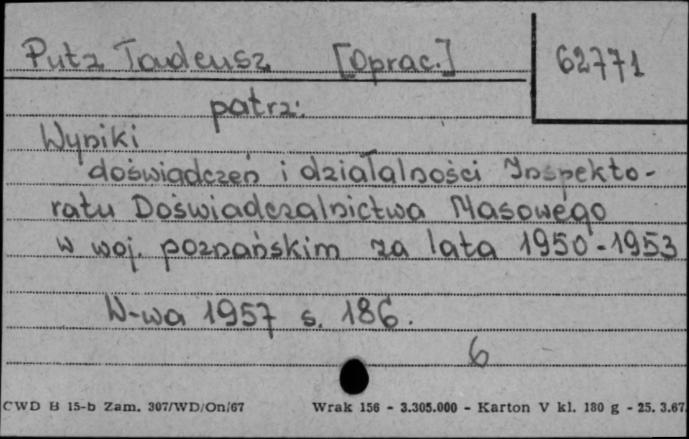 Putz Tadeusz [Oprac.] 62771
patrz:
Wyniki
doświadczeń i działalności Inspekto-
ratu Doświadczalnictwa Masowego
w woj. poznańskim za lata 1950-1953
W-wa 1957 s. 186.
6
CWD B 15-b Zam. 307/WD/On/67 Wrak 156 - 3.305.000 - Karton V kl. 180 g - 25. 3.67.